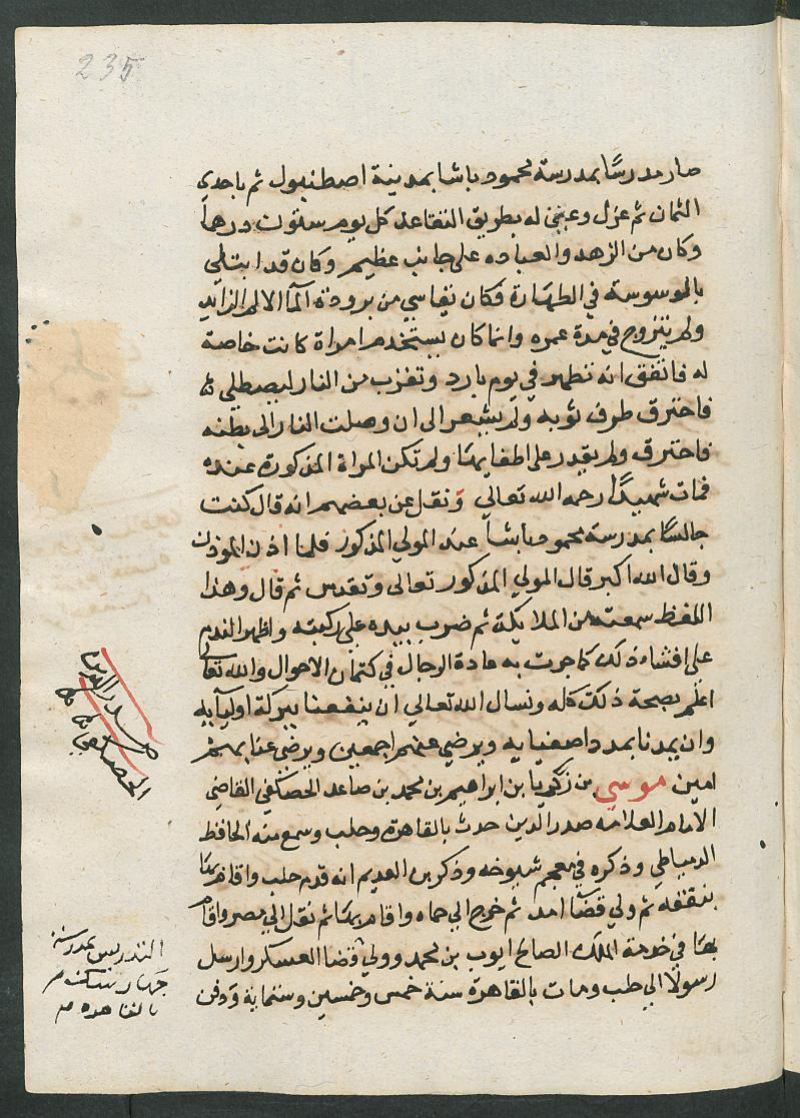 235
صار مدرسًا بمدرسة محمود باشا بمدينة اصطنبول ثم باحدي
الثمان ثم عزل وعين له بطريق التقاعد كل يوم ستون درهماً
وكان من الزهد والعباده على جانب عظيم وكان قد ابتلي
بالموسوسة في الطهارة فكان يقاسي من برودة المآ الالم الزايد
ولم يتزوج في مدة عمره وانما كان يستخدم امراة كانت خاصة
له فاتفق انه تطهر في يوم بارد وتقرب من النار ليصطلي
فاحترق طرف ثوبه ولم يشعر الى ان وصلت النار الى بطنه
فاحترق ولم يقدر على اطفايها ولم تكن المراة المذكورة عنده
فمات شهيدًا رحمه الله تعالي ونقل عن بعضهم انه قال كنت
جالسًا بمدرسة محمود باشا عند المولي المذكور فلما اذن الموذن
وقال الله اكبر قال المولي المذكور تعالى وتقدس ثم قال وهذا
اللفظ سمعته من الملايكة ثم ضرب بيده على ركبته واظهر الندم
على افشاء ذلك كما جرت به عادة الرجال في كتمان الاحوال والله تعالى
اعلم بصحة ذلك كله ونسال الله تعالي ان ينفعنا ببركة اوليآيه
وان يمدنا بمدد اصفيايه ويرضي عنهم اجمعين ويرضي عنا بهم
امين موسي بن زكريا بن ابراهيم بن محمد بن صاعد الحصكفي القاضي
الامام العلامه صدر الدين حدث بالقاهرة وحلب وسمع منه الحافظ
الدمياطي وذكره في معجم شيوخه وذكر بن العديم انه قدم حلب واقام بها
يتفقه ثم ولي قضآ امد ثم خرج الي حماه واقام بها ثم نقل الي مصر واقام
بها في خدمة الملك الصالح ايوب بن محمد وولي قضا العسكر وارسل
رسولا الي حلب ومات بالقاهرة سنة خمس وخمسين وستماية ودفن
صدر الدين
الحصكفي
التدريس بمدرسة
بالقاهره